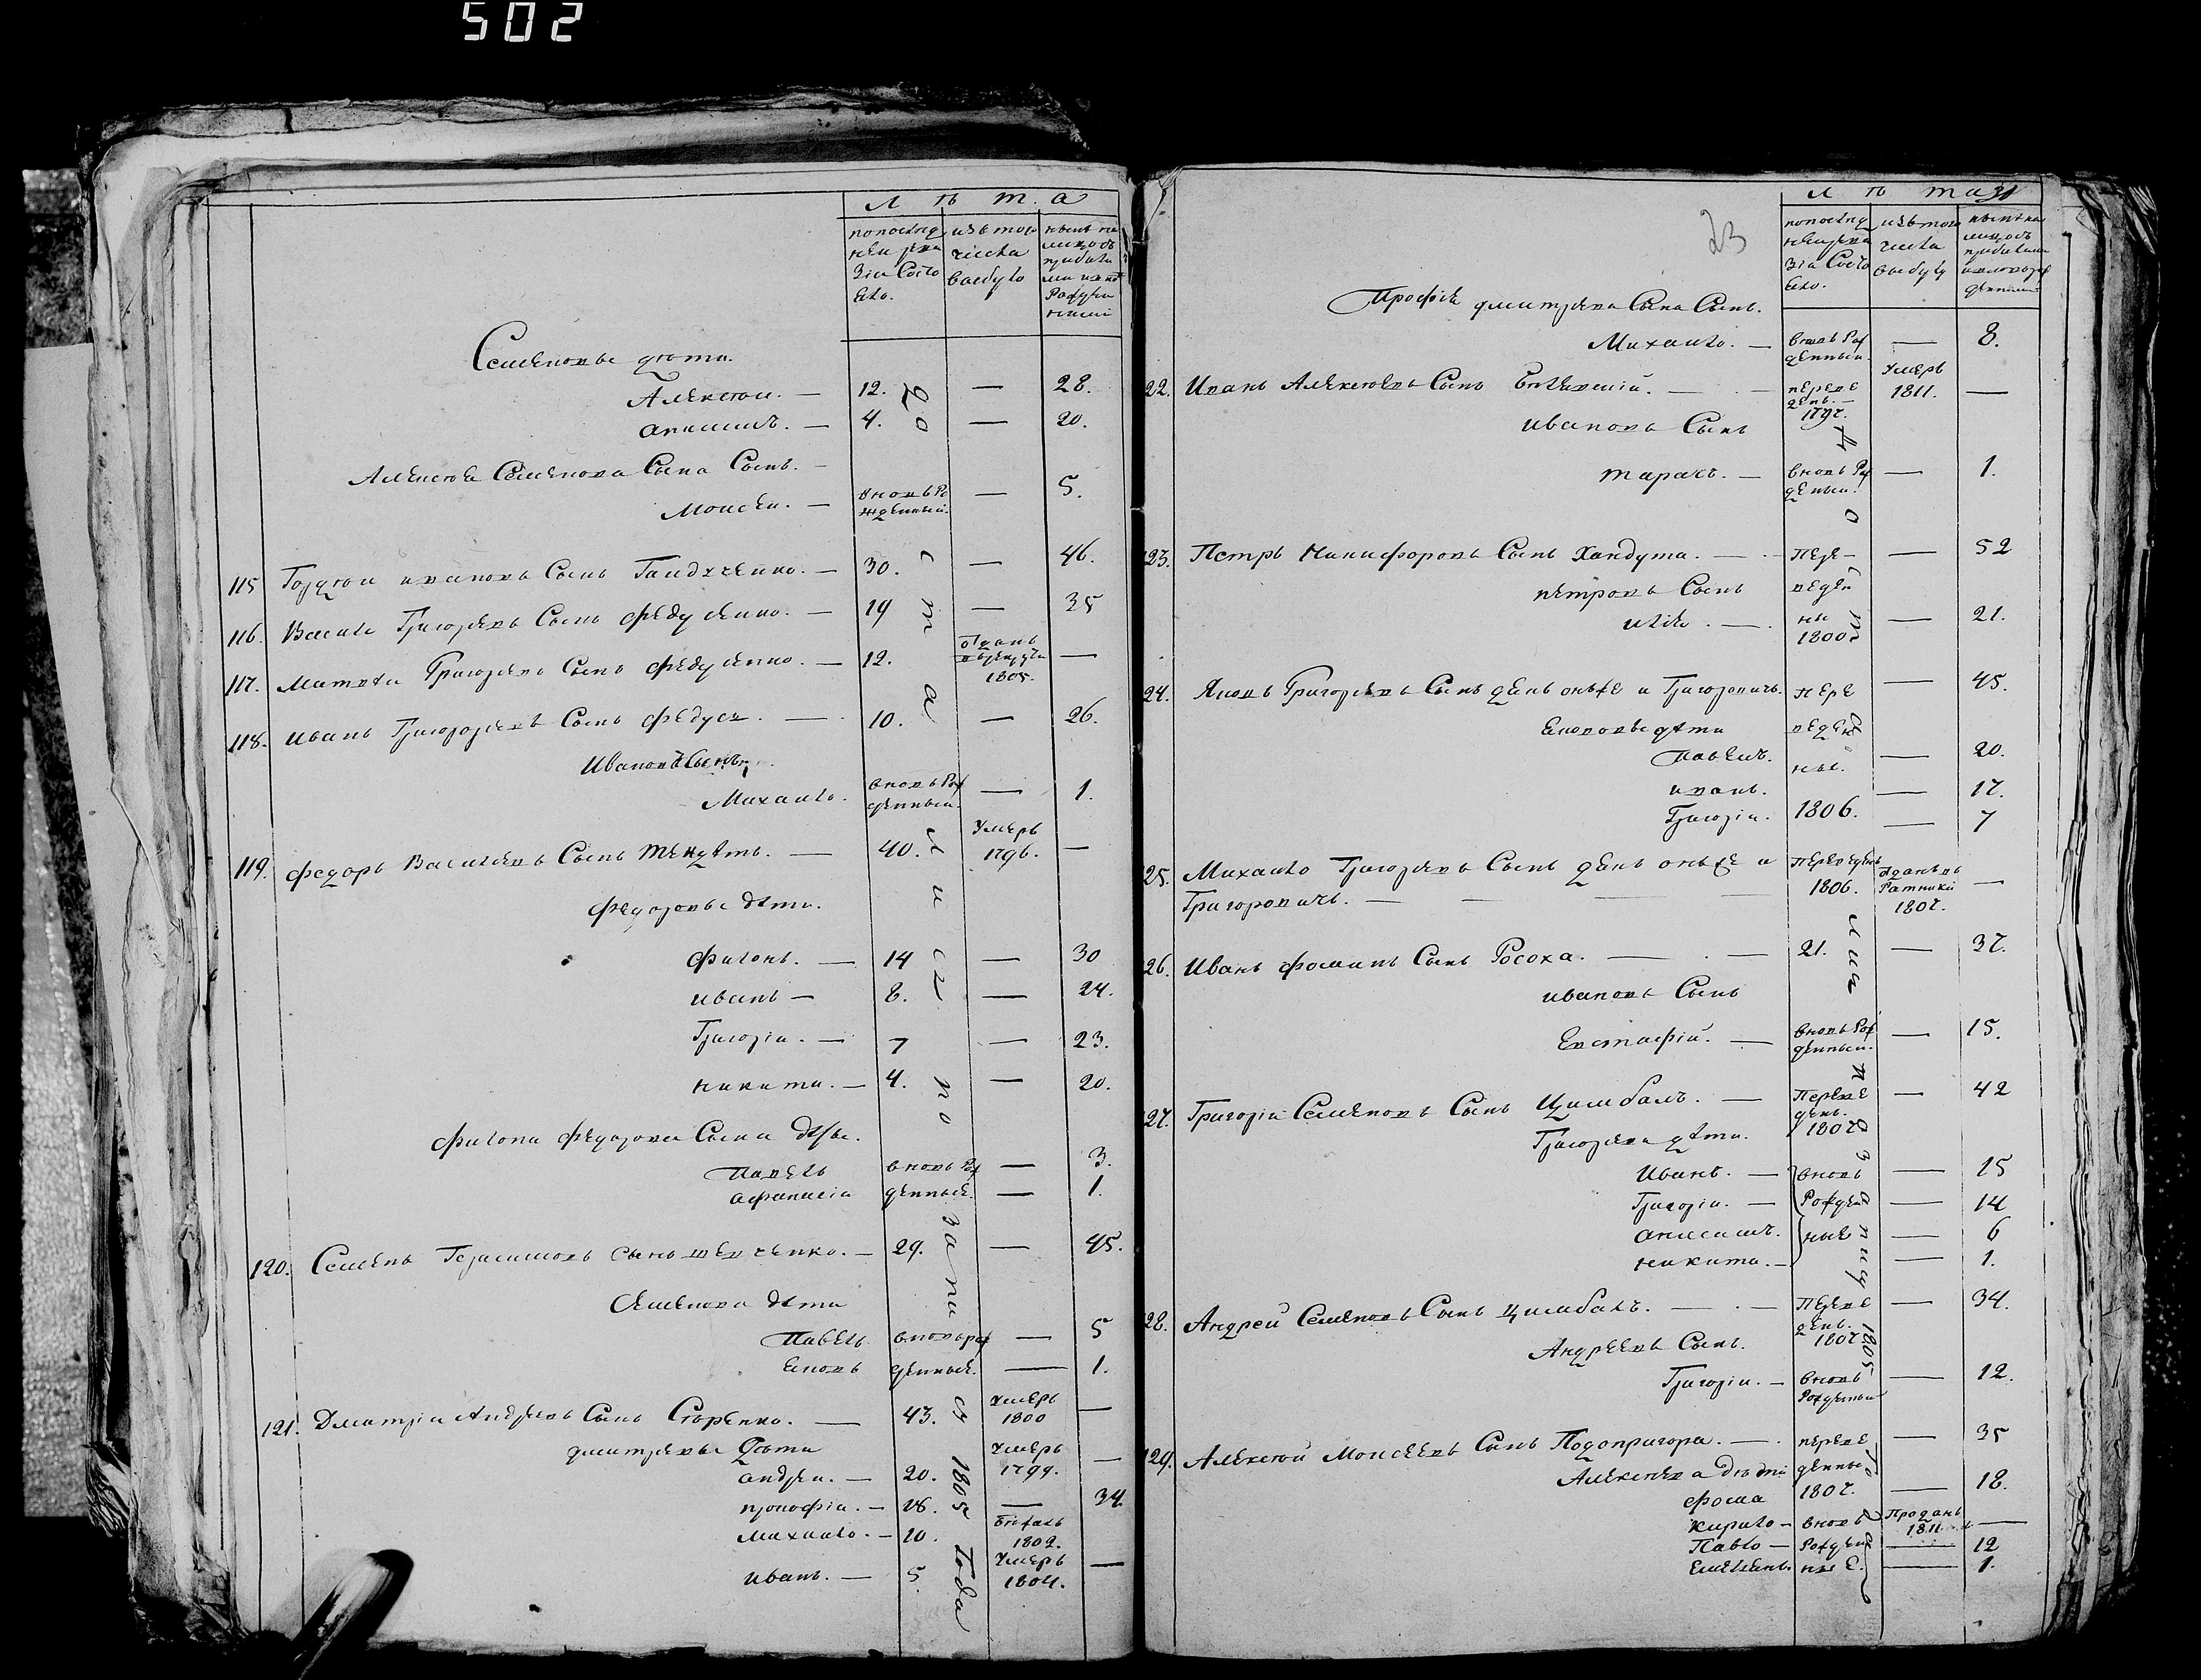 502
Л ѣ т а
по последней ревизии состояло.
изъ того числа выбыло
ныне на лицо съ прибылыми и новорожденными
Семеновы дѣти.
Алексѣй. — 12. — 28.
Анисимъ. — 4. — 20.
Алексѣя Семенова Сына Сынъ. —
Моисей. — вновь рожденный. — 5.
115 Гордѣй Ивановъ Сынъ — 30. — 46.
116. Василь Григорьевъ Сынъ Федусенко. — 19 — 35
117. Матвѣй Григорьевъ Сынъ Федусенко. — 12. отданъ в рекруты 1805. —
118. Иванъ Григорьевъ Сынъ Федусь. — 10. — 26.
Ивановъ Сынъ
Михайло. вновь рожденный. — 1.
119. Федоръ Васильевъ Сынъ — 40. Умеръ 1796. —
Федоровы дѣти.
Филонъ. — 14 — 30
иванъ — 8. — 24.
Григорій. — 7 — 23.
никита. — 4. — 20.
Филона Федорова Сына дѣти.
Павелъ вновь рож — 3.
афанасій денные. — 1.
120. Семенъ Герасимовъ Сынъ Шевченко. — 29. — 45.
Семенова дѣти
Павелъ вновь рож — 5
Яковъ денные. — 1.
121. Дмитрій Андреевъ Сынъ — 43. Умеръ 1800 —
дмитревы дѣти
андрей. — 20. Умеръ 1799. —
прокофій. — 18. — 34.
михайло. — 10. бѣжалъ 1802.
иванъ. — 5. Умеръ 1804. —
1805 года
23
Л ѣ т а 31
по последней ревизии состояло.
изъ того числа выбыло
ныне на лицо съ прибылыми и новорожденными
дмитрева Сына Сынъ.
Михайло. — вновь рожденный. — 8.
22. Иванъ Алексѣевъ Сынъ — переведенъ. 1797. Умеръ 1811. —
ивановъ Сынъ
тарасъ. — вновь рожденый. — 1.
23. Петръ Никифоровъ Сынъ Хандута. — пере — 52
петровъ Сынъ веден
илько. — ны 1800 — 21.
24. Яковъ Григорьевъ Сынъ онъ же и Григоровичъ. пере — 45.
Якововы дѣти веден
Павелъ. ные. — 20.
иванъ. — 17.
Григорій. 1806. — 7
25. Михайло Григорьевъ Сынъ онъ же и переведенъ отданъ въ
Григоровичъ. — 1806. Ратники 1807. —
26. Иванъ Фоминъ Сынъ Росоха. — 21. — 37.
ивановъ Сынъ
Евстафій. — вновь рожденный. — 15.
27. Григорій Семеновъ Сынъ Цимбалъ. — переведенъ. 1807 — 42
Григорьева дѣти.
Иванъ. — вновь — 15
Григорій. — рожден — 14
анисимъ. ные — 6
никита. — — 1.
28. Андрей Семеновъ Сынъ Цимбалъ. — переведенъ. 1807 — 34.
Андреевъ Сынъ.
Григорій. — вновь рожденный — 12.
129. Алексѣй Моисеевъ Сынъ Подопригора. — переве — 35
Алексѣева дѣти денные
фома 1807. — 18.
кирило — вновь Проданъ 1811. —
Павло — рожден — 12
Емельянъ. ные. — 1.